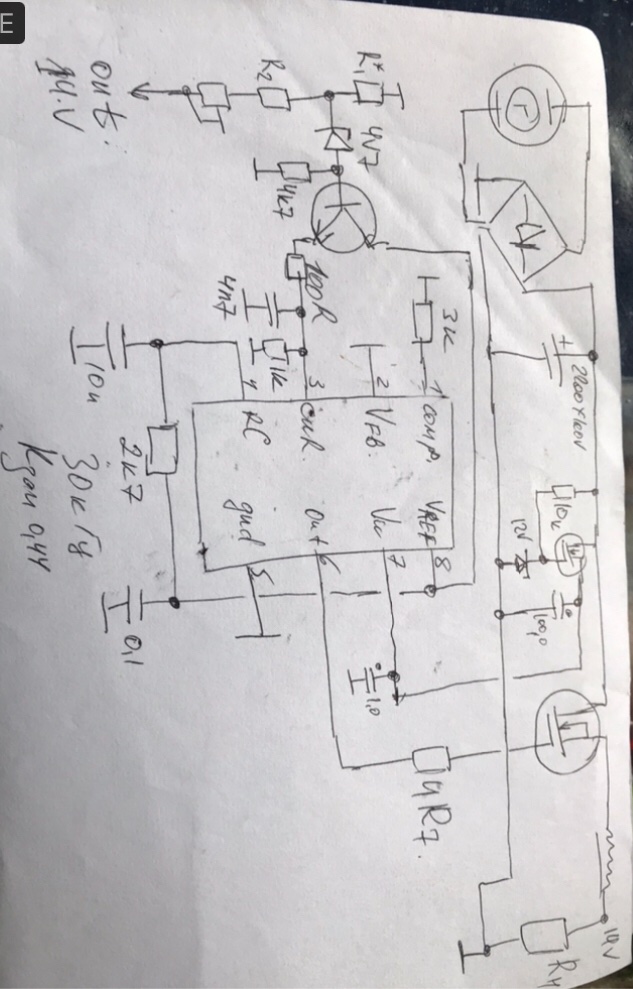 E
out:
14.V
R2
R1*
4V7
4k7
100R
4n7
1k
3k
1 comp.
2 VFB.
3 cur.
4 RC
VREF 8
7
out 6
gnd 5
10n
2k7
30кГц
Кзап 0,44
0,1
1,0
4R7.
+
2200x100V
110k
12V
100,0
14V
RH